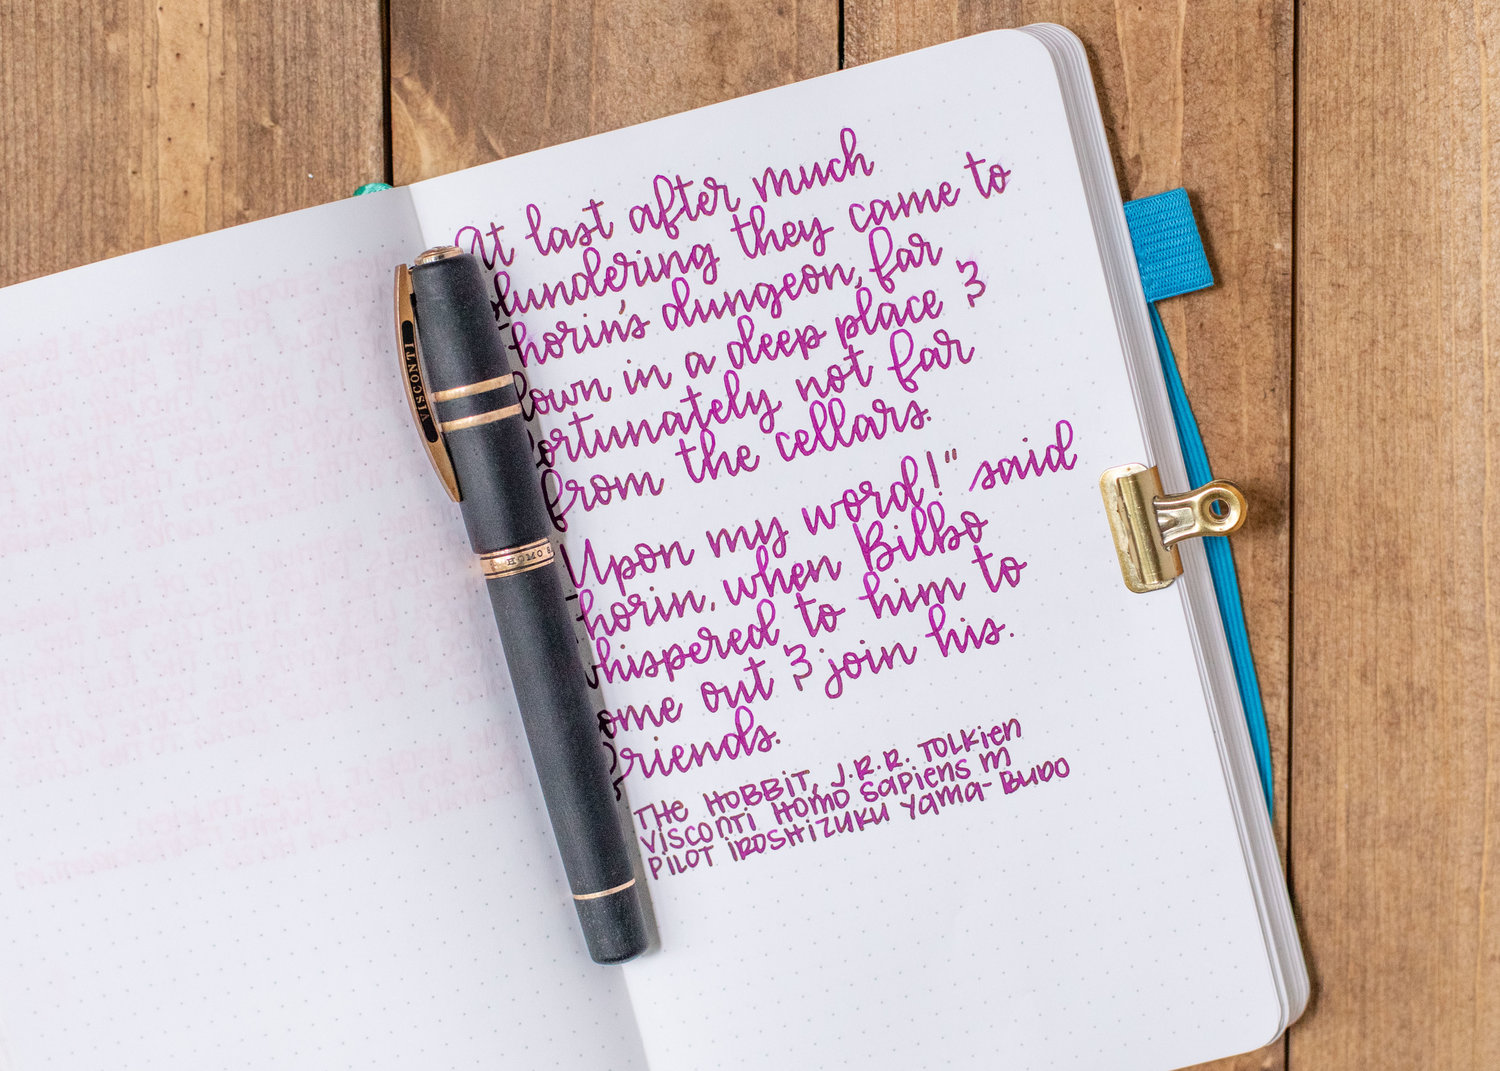 At last after much
blundering they came to
Thorin's dungeon, far
down in a deep place &
fortunately not far
from the cellars.
"Upon my word!" said
Thorin, when Bilbo
whispered to him to
come out & join his
friends.
THE HOBBIT, J.R.R. TOLKIEN
VISCONTI HOMO SAPIENS M
PILOT IROSHIZUKU YAMA-BUDO
VISCONTI
HOMO S